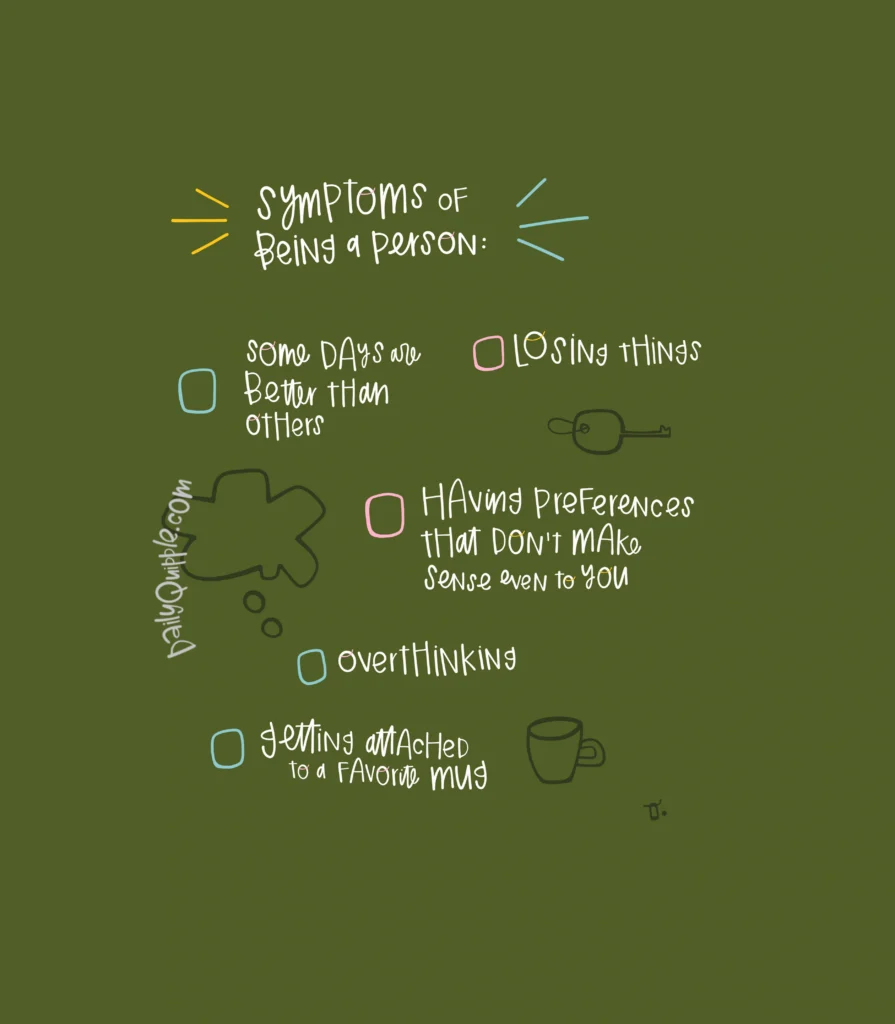 Symptoms of
Being a person:
Some days are
Better than
others
Losing things
Having preferences
that don't make
sense even to you
DailyQuipple.com
overthinking
getting attached
to a favorite mug